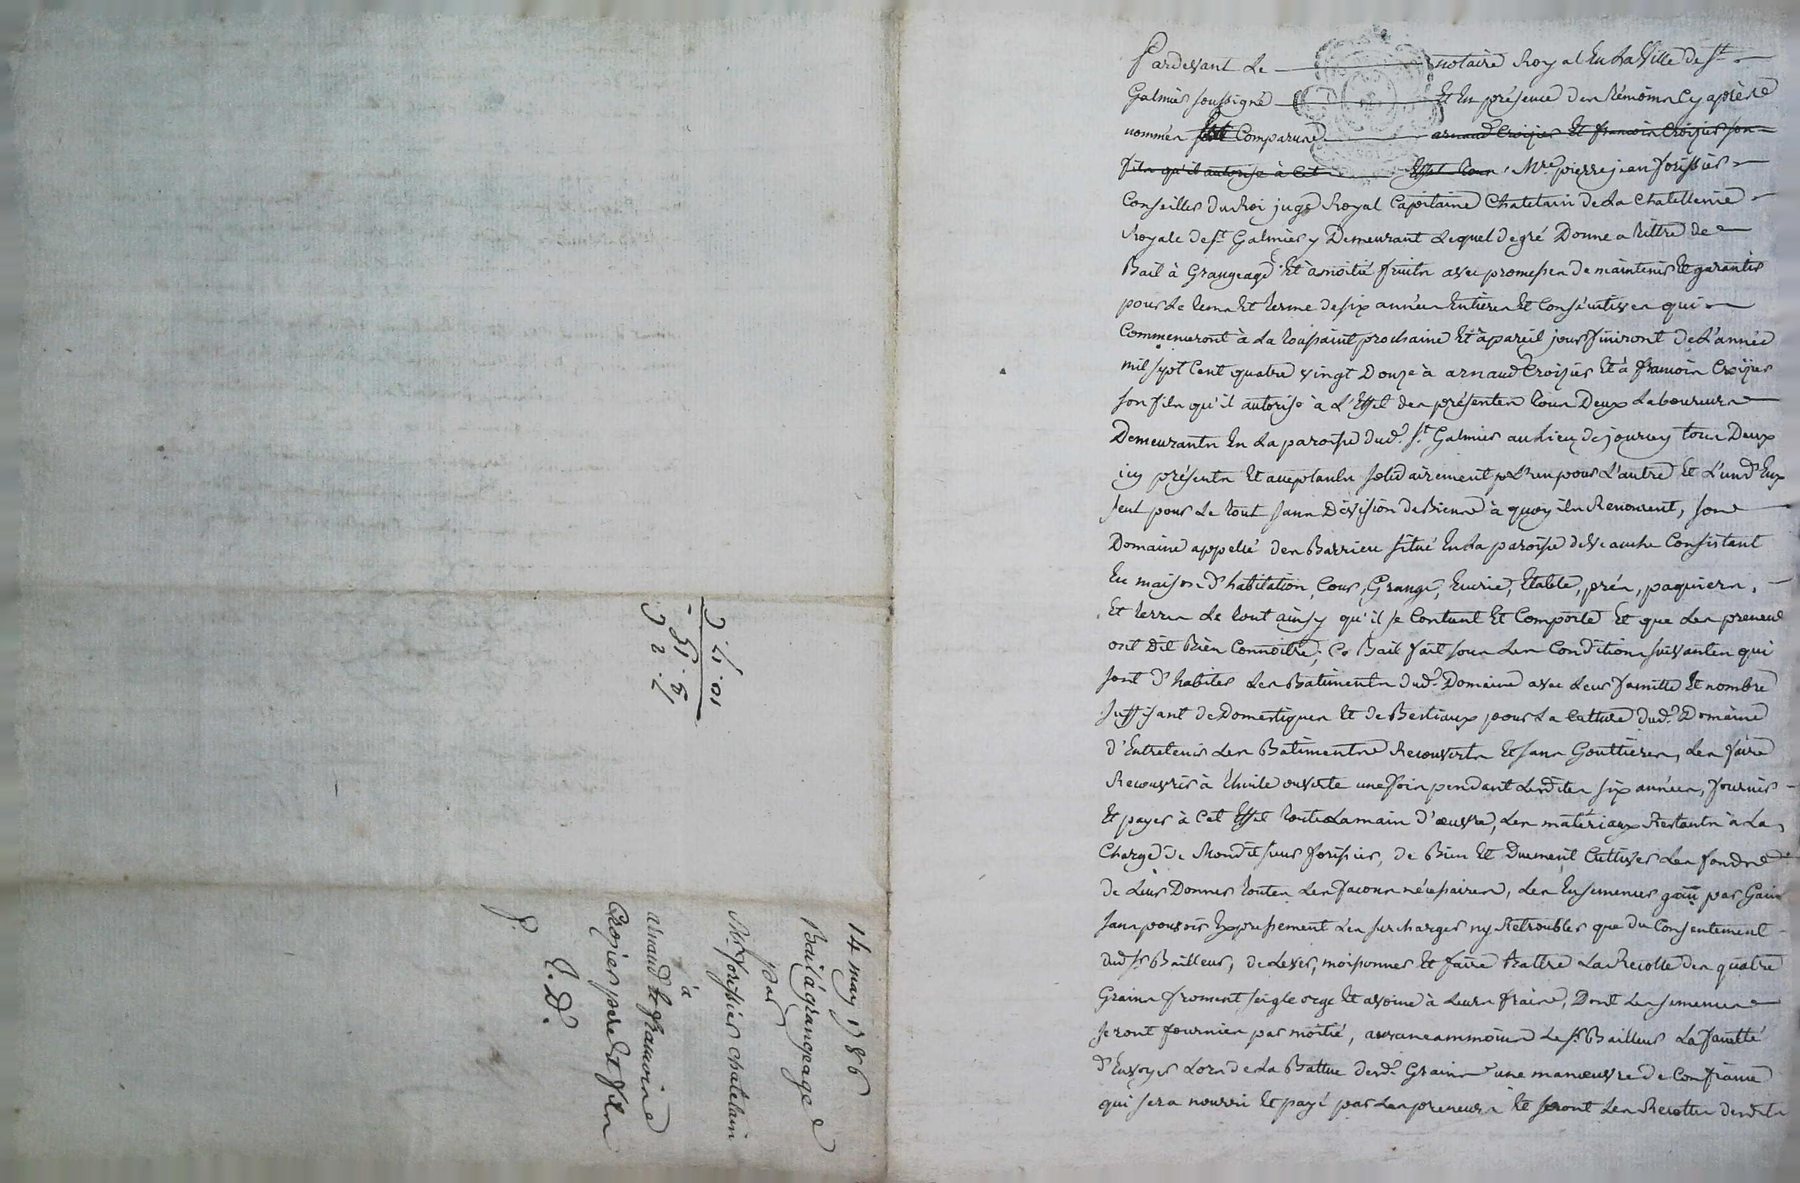 14 may 1786
Bail à grangeage
par
Sr. forissier chatelain
à
arnaud et francois
Croizier pere et fils
J. D.
Pardevant Le notaire Royal En La Ville de St.
Galmier soussigné Et En présence des témoins Cy après
nommés Comparure arnaud Croizier Et francois Croizier son
fils qu'il autorise à Cet Effet tous Mre. pierre jean forissier
Conseiller du Roi juge Royal Capitaine Chatelain de La Chatellenie
Royale de St. Galmier y Demeurant Lequel de gré Donne a titre de
Bail à Grangeage Et à moitié fruits avec promesses de maintenir Et garantir
pour Le tems Et terme de six années Entieres Et Consécutives qui
Commenceront à La toussaint prochaine Et à pareil jour finiront de L'année
mil sept Cent quatre vingt Douze à arnaud Croizier Et à francois Croizier
son fils qu'il autorise à L'Effet des présentes tous Deux Laboureurs
Demeurants En La paroisse dud. St. Galmier au Lieu de jourcey tous Deux
icy présents Et acceptants solidairement L'un pour L'autre Et L'un d'Eux
seul pour Le tout sans Division de Biens à quoy ils Renoncent, son
Domaine appellé des Barrieu situé En La paroisse de Veauche Consistant
En maison d'habitation, Cour, Grange, Ecurie, Etable, prés, paquiers,
Et terres Le tout ainsy qu'il se Contient Et Comporte Et que Les preneurs
ont Dit Bien Connoitre; Ce Bail fait sous Les Conditions suivantes qui
sont d'habiter Les Batiments dud. Domaine avec Leur famille Et nombre
suffisant de Domestiques Et de Bestiaux pour La Culture dud. Domaine
d'Entretenir Les Batiments Recouverts Et sans Gouttieres, Les faire
Recouvrir à thuile ouverte une fois pendant Lesdites six années, fournir
Et payer à Cet Effet toute La main d'œuvre, Les matériaux Restants à La
Charge de Mondit sieur forissier, de Bien Et Duement Cultiver Les fonds
de Leur Donner toutes Les façons nécessaires, Les Ensemencer par Gain
sans pouvoir Expressement Les surcharger ny Retroubler que du Consentement
dud. Sr. Bailleur, de Lever, moissonner Et faire Battre La Recolte des quatre
Grains froment seigle orge Et avoine à Leurs frais, Dont Les semences
seront fournies par moitié, aura neammoins Le Sr. Bailleur La faculté
d'Envoyer Lors de La Battue desd. Grains une manœuvre de Confiance
qui sera nourri Et payé par Les preneurs Et seront Les Recoltes desdits